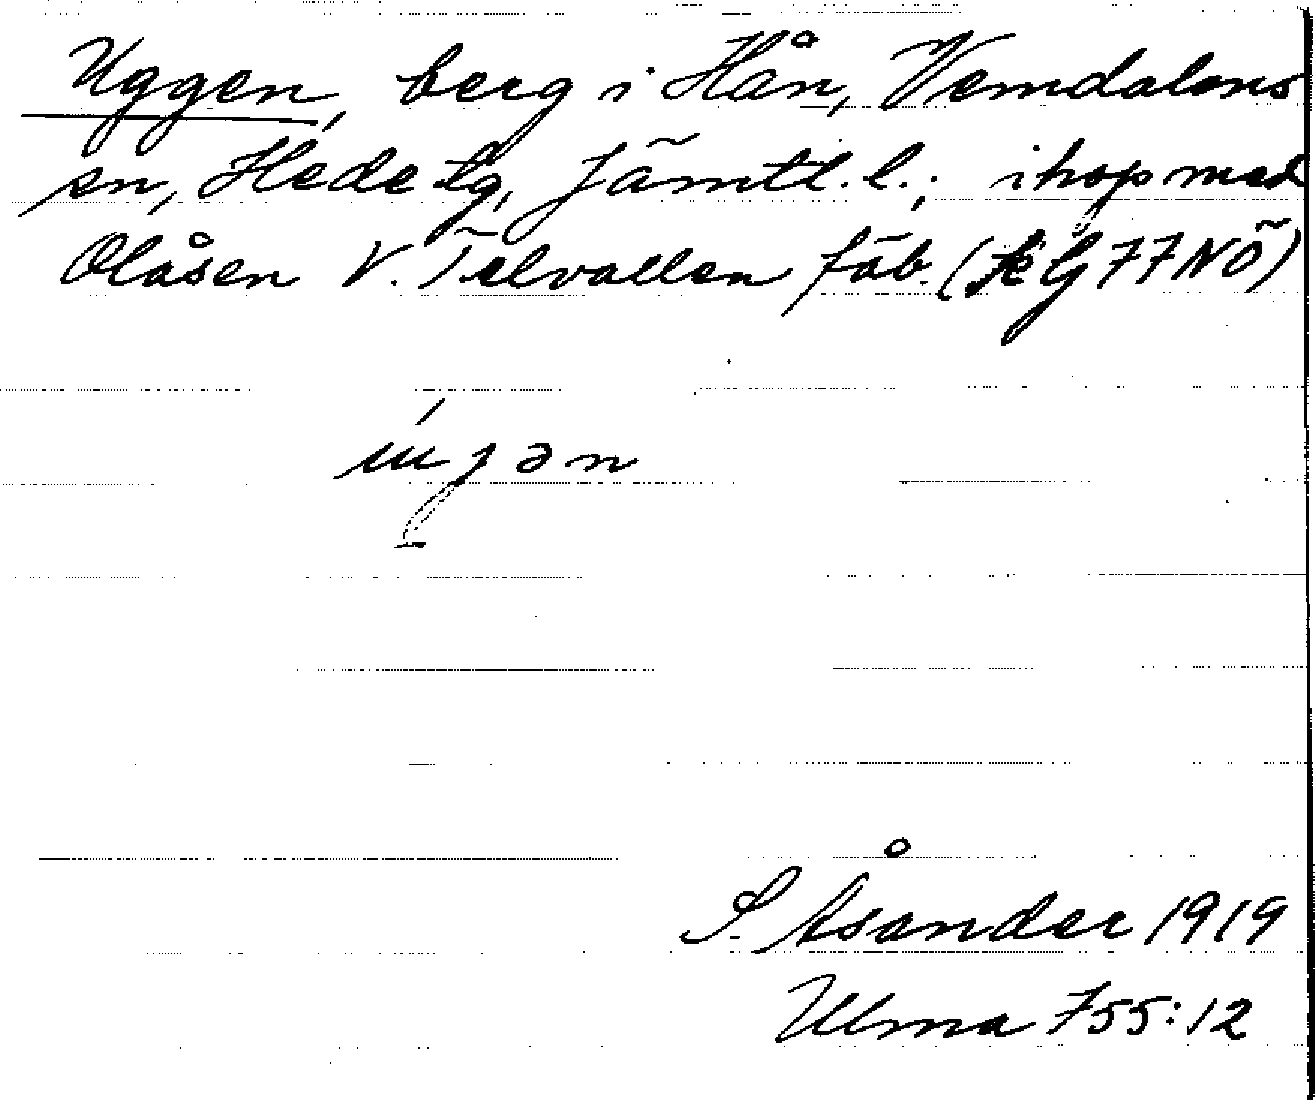 Uggen, berg i Hån, Vemdalens
sn, Hede tg, Jämtl. l.; ihop med
Olåsen V. Telvallen fäb. (KG77NÖ)
S. Åsander 1919
Ulma 755:12